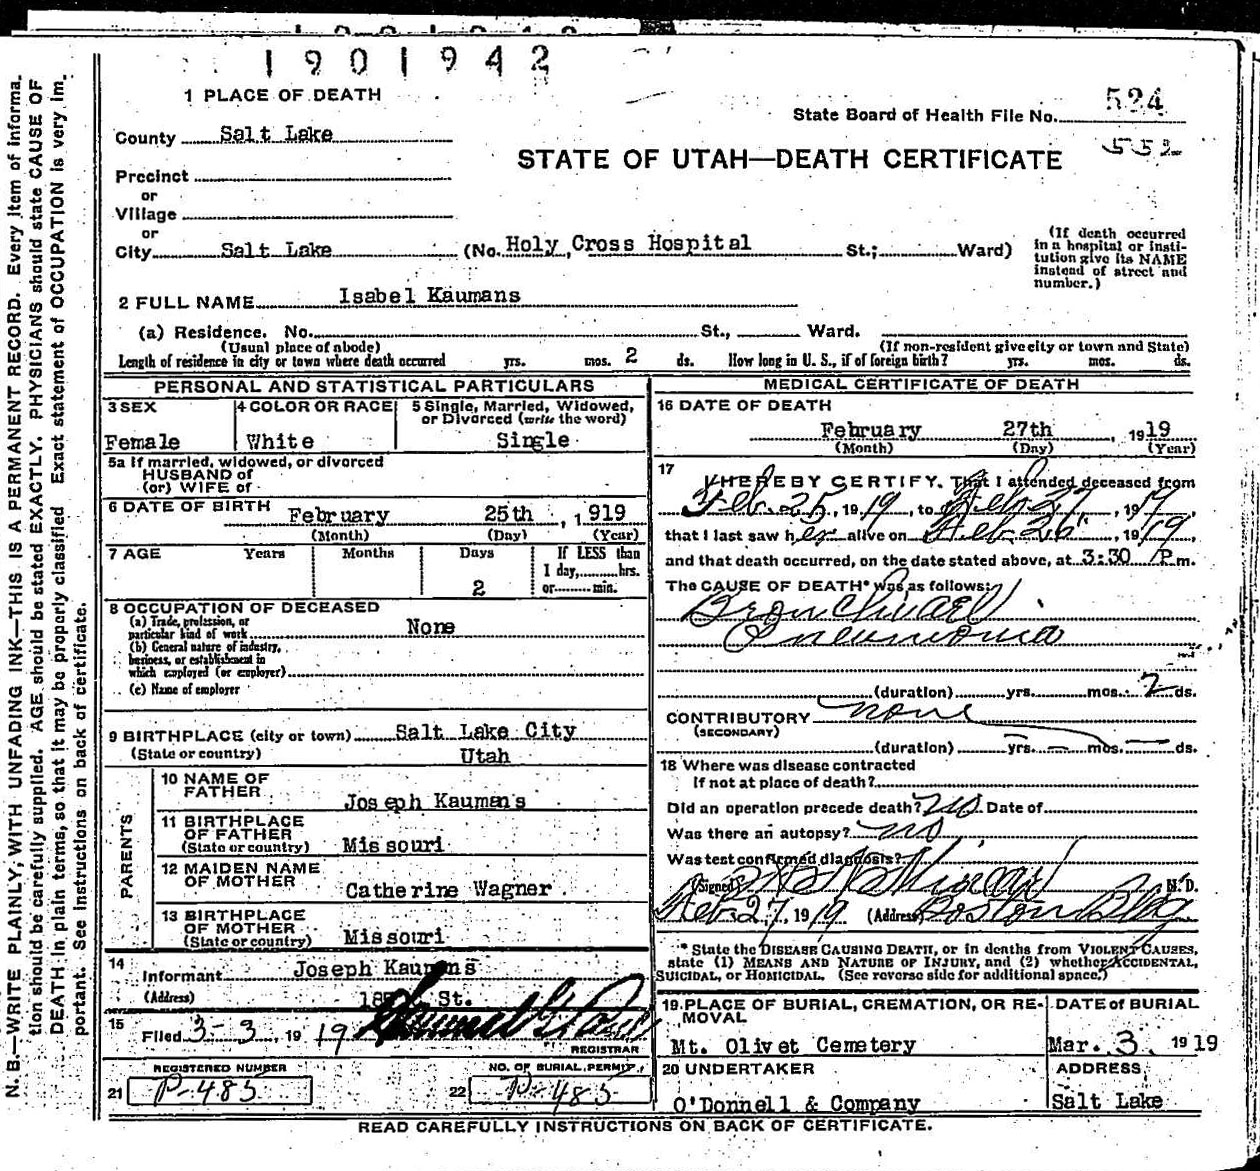 1901942
1 PLACE OF DEATH
State Board of Health File No. 524
552
County Salt Lake
STATE OF UTAH—DEATH CERTIFICATE
Precinct
or
Village
or
City Salt Lake (No. Holy Cross Hospital St.; Ward)
(If death occurred
in a hospital or insti-
tution give its NAME
instead of street and
number.)
2 FULL NAME Isabel Kaumans
(a) Residence. No. St., Ward.
(Usual place of abode) (If non-resident give city or town and State)
Length of residence in city or town where death occurred yrs. mos. 2 ds. How long in U. S., if of foreign birth? yrs. mos. ds.
PERSONAL AND STATISTICAL PARTICULARS
3 SEX
Female
4 COLOR OR RACE
White
5 Single, Married, Widowed,
or Divorced (write the word)
Single
5a If married, widowed, or divorced
HUSBAND of
(or) WIFE of
6 DATE OF BIRTH February 25th, 1919
(Month) (Day) (Year)
7 AGE Years Months Days If LESS than
1 day, hrs.
2 or min.
8 OCCUPATION OF DECEASED
(a) Trade, profession, or
particular kind of work None
(b) General nature of industry,
business, or establishment in
which employed (or employer)
(c) Name of employer
9 BIRTHPLACE (city or town) Salt Lake City
(State or country) Utah
PARENTS
10 NAME OF
FATHER Joseph Kaumans
11 BIRTHPLACE
OF FATHER
(State or country) Missouri
12 MAIDEN NAME
OF MOTHER Catherine Wagner
13 BIRTHPLACE
OF MOTHER
(State or country) Missouri
14 Informant Joseph Kaumans
(Address) St.
15 Filed 3-3, 1919
REGISTRAR
REGISTERED NUMBER NO. OF BURIAL PERMIT
21 P-485 22 P-485
MEDICAL CERTIFICATE OF DEATH
16 DATE OF DEATH
February 27th, 1919
(Month) (Day) (Year)
17 I HEREBY CERTIFY, That I attended deceased from
Feb. 25, 1919, to Feb 27, 1919,
that I last saw her alive on Feb. 26", 1919,
and that death occurred, on the date stated above, at 3:30 P.m.
The CAUSE OF DEATH* was as follows:
Bronchial
Pneumonia
(duration) yrs. mos. 2 ds.
CONTRIBUTORY none
(SECONDARY)
(duration) — yrs. — mos. — ds.
18 Where was disease contracted
If not at place of death?
Did an operation precede death? no Date of
Was there an autopsy? no
Was test confirmed diagnosis?
(Signed) M. D.
Feb. 27, 1919 (Address) Boston Bldg
* State the DISEASE CAUSING DEATH, or in deaths from VIOLENT CAUSES,
state (1) MEANS AND NATURE OF INJURY, and (2) whether ACCIDENTAL,
SUICIDAL, or HOMICIDAL. (See reverse side for additional space.)
19 PLACE OF BURIAL, CREMATION, OR RE-
MOVAL
Mt. Olivet Cemetery
DATE of BURIAL
Mar. 3. 1919
20 UNDERTAKER
O'Donnell & Company
ADDRESS
Salt Lake
READ CAREFULLY INSTRUCTIONS ON BACK OF CERTIFICATE.
N. B.—WRITE PLAINLY, WITH UNFADING INK—THIS IS A PERMANENT RECORD. Every item of informa-
tion should be carefully supplied. AGE should be stated EXACTLY. PHYSICIANS should state CAUSE OF
DEATH in plain terms, so that it may be properly classified. Exact statement of OCCUPATION is very im-
portant. See instructions on back of certificate.